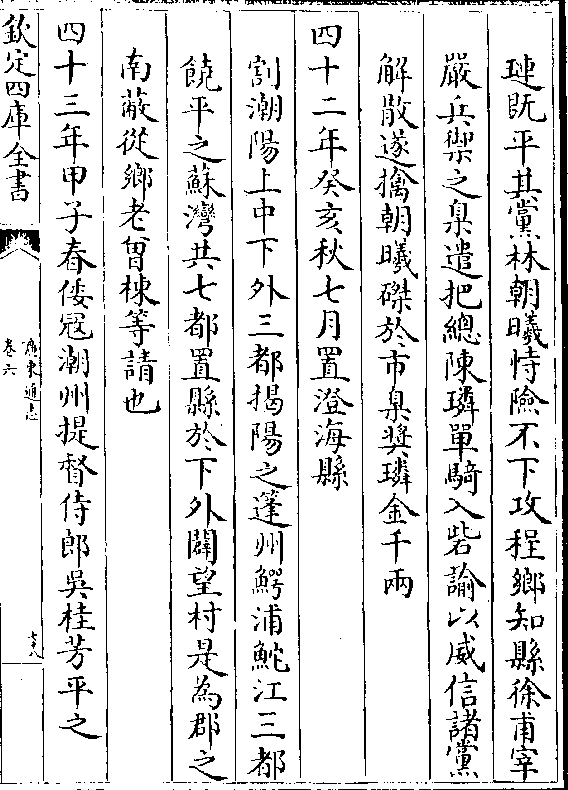 璉既平其黨林朝曦恃險不下攻程鄉知縣徐甫宰
嚴兵禦之臬遣把總陳璘單騎入砦諭以威信諸黨
解散遂擒朝曦磔於市臬奬璘金千兩
四十二年癸亥秋七月置澄海縣
割潮陽上中下外三都揭陽之蓬州鰐浦鮀江三都
饒平之蘇灣共七都置縣於下外闢望村是為郡之
南蔽從鄉老曾棟等請也
四十三年甲子春倭冦潮州提督侍郎吳桂芳平之
欽定四庫全書
廣東通志
卷六